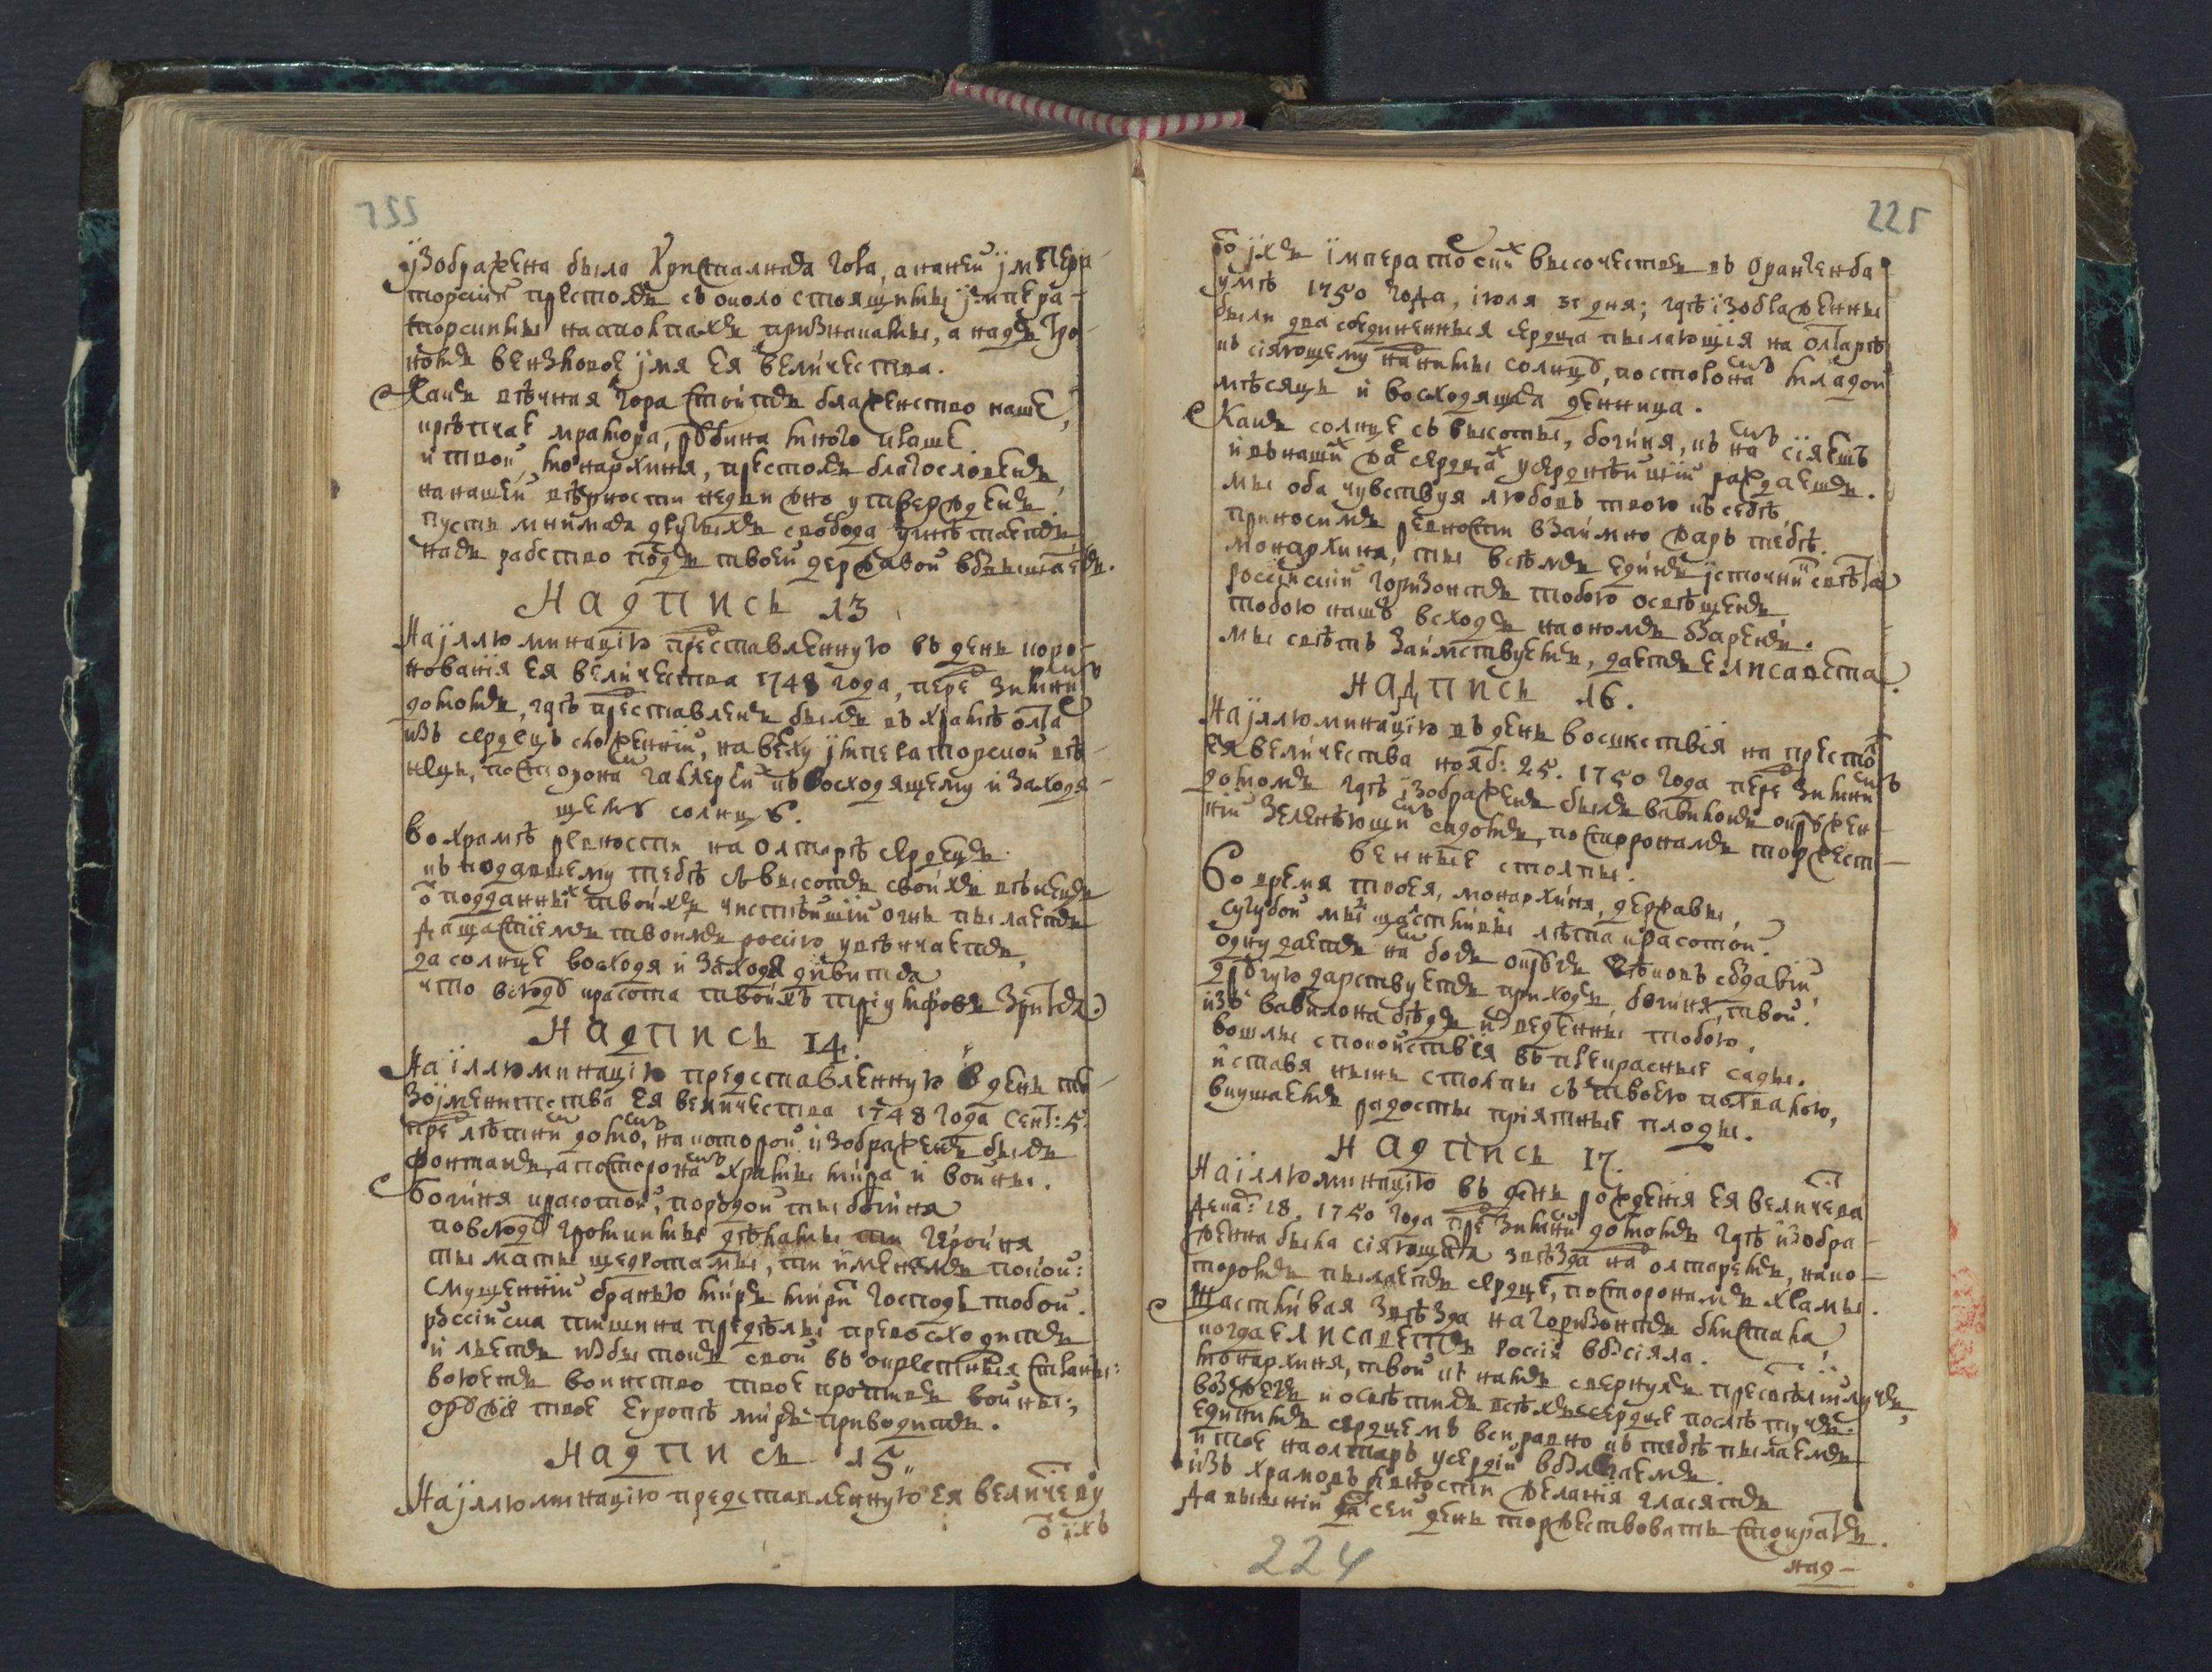 изображена была Христалная гора, а на ней импера-
торскій престолъ съ около стоящими императ-
торскими на столпахъ признаками, а надъ тро-
номъ вензловое имя ея величества.
Какъ вѣчная гора стоитъ блаженство наше,
крѣпчае мрамора, рубина много краше.
и твой, монархиня, престолъ благословенъ,
на нашей вѣрности недвижно утвержденъ.
пусть мнимая другихъ свобода угнѣтаетъ,
насъ рабство подъ твоей державой возвышаетъ.
Надпись 13
На иллюминацію представленную въ день коро-
нованія ея величества 1748 года, предъ зимнимъ
домомъ, гдѣ представленъ былъ въ храмѣ олтарь
изъ сердецъ сложенній, на верху императорской вѣ-
нецъ, по сторонамъ галлереи къ восходящему и заходя-
щему солнцу.
Во храмѣ ревности на олтарѣ сердецъ
къ подавшему тебѣ съ высотъ своихъ вѣнецъ
о подданныхъ твоихъ чистѣйшій огнь пылаетъ
да щастіемъ твоимъ россію увѣнчаетъ,
да солнце восходя и заходя дивится
что всюду красота твоихъ тріумфовъ зрится.
Надпись 14.
На иллюминацію представленную в день те-
зоименитства ея величества 1748 года сент: 5.
предъ лѣтнимъ домомъ, на которой изображенъ былъ
фонтанъ, а по сторонамъ храмы мира и войны.
Богиня красотой, породой ты богиня
повсюду громкими дѣлами ты героиня
ты мать щедротами, ты именемъ покой:
смущенній бранью миръ миритъ господь тобой.
россійска тишина предѣлы превосходитъ
и льетъ избытокъ свой въ окрестныя страны:
воюетъ воинство твое противъ войны:,
оружіе твое европѣ миръ приводитъ.
Надпись 15
На иллюминацію представленную ея величеству
о ихъ
225
о ихъ императорскихъ высочествъ въ Орангенба
умѣ 1750 года, іюля 31 дня; гдѣ изображенны
были два соединенныя сердца пылающія на олтарѣ
къ сіяющему надъ ними солнцу, по сторонамъ младой
мѣсяцъ и восходящая денница.
Какъ солнце съ высоты, богиня, къ намъ сіяешъ
и въ нашихъ жаръ сердцахъ усерднѣйшій раждаешъ.
мы оба чувствуя любовь твою къ себѣ,
приносимъ ревности взаимно жаръ тебѣ.
монархиня, ты всѣмъ единъ источникъ свѣта
россійскій горизонтъ тобою освѣщенъ,
тобою нашъ всходъ на ономъ озаренъ.
мы свѣтъ заимствуемъ, даетъ елисавета.
Надпись 16.
На иллюминацію въ день восшествія на престолъ
ея величества нояб: 25. 1750 года предъ зимнимъ
домомъ гдѣ изображенъ былъ вавилонъ окружен-
ній зеленѣющимъ садомъ, по сторонамъ торжест-
венные столпы.
Во время твоея, монархиня, державы,
сугубой мы щастливы лѣта красотой.
одну даетъ намъ богъ округъ вѣковъ создавій,
другую дарствуетъ приходъ, богиня, твой.
изъ вавилона бѣдъ изведенны тобою,
вошли спокойствія въ прекрасные сады.
и ставя нынѣ столпы съ твоею похвалою,
вкушаемъ радости пріятные плоды.
Надпись 17.
На иллюминацію въ день рожденія ея величества
декаб: 18. 1750 года предъ зимнимъ домомъ гдѣ изобра-
женна была сіяющая звѣзда надъ олтаремъ, на ко-
торомъ пылаетъ сердце, по сторонамъ храмы.
Щастливая звѣзда на горизонтъ блистала,
когда елисаветъ россіи возсіяла.
монархиня, твой къ намъ сверкнулъ пресвѣтлый лучъ,
возжегъ и освѣтилъ всѣхъ сердце послѣ тучъ.
единымъ сердцемъ вси равно къ тебѣ пылаемъ
и тое на олтарь усердій возлагаемъ.
изъ храмовъ ревности желанія гласятъ
да вышній дастъ сей день торжествовать стократъ.
над-
224